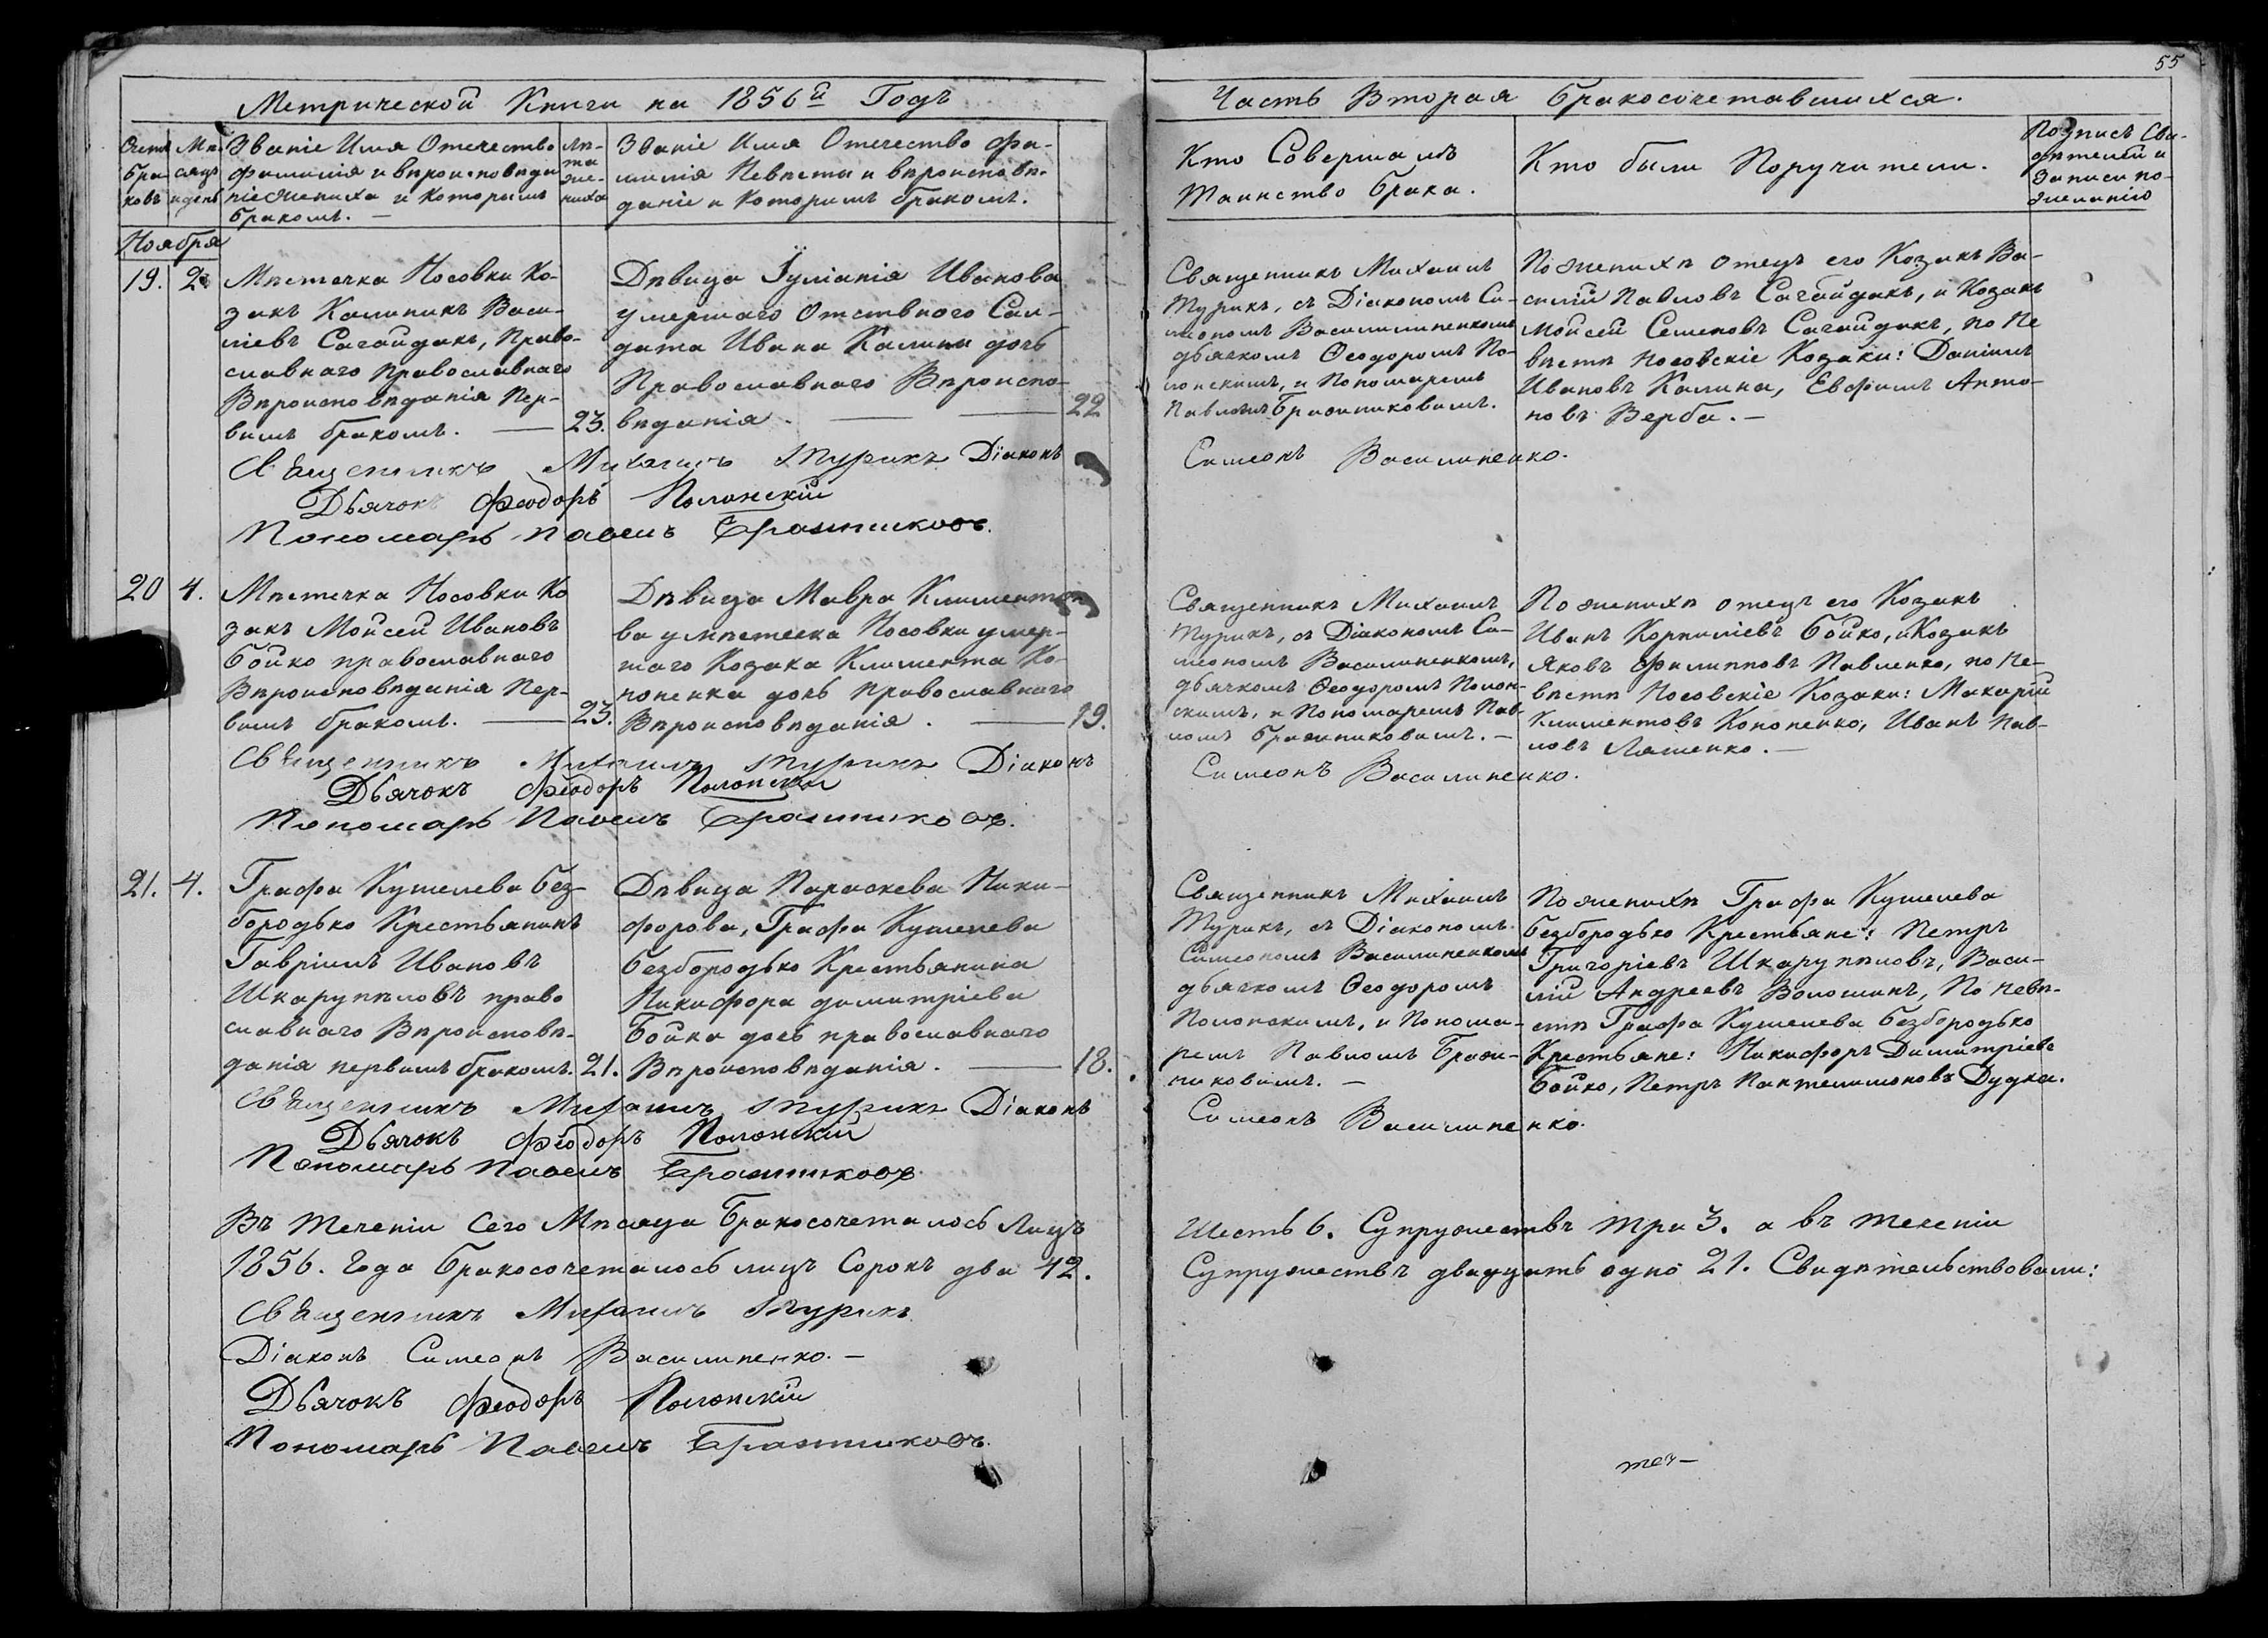 55
Метрической Книги на 1856й Годъ
Часть Вторая бракосочетавшихся.
Счетъ браковъ
Мѣсяцъ и день
Званіе Имя Отечество
фамилія и вѣроисповѣда
ніе Жениха и Которымъ
бракомъ. —
Лѣта жениха
Званіе Имя Отечество фа-
милія Невѣсты и вѣроисповѣ-
даніе и Которымъ бракомъ.
Кто Совершалъ
Таинство брака.
Кто были Поручители.
Подпись Сви-
дѣтелей и
Записи по-
желанію
Ноября
19. 2
Мѣстечка Носовки Ко-
закъ Калиникъ Васи-
ліевъ Сагайдакъ, Право-
славнаго Православнаго
Вѣроисповѣданія Пер-
вымъ бракомъ. — 23.
Дѣвица Іуліанія Иванова
умершаго Отставного Сал-
дата Ивана Калины дочь
Православнаго Вѣроиспо-
вѣданія. — 22
Священникъ Михаилъ
Турикъ, съ Діакономъ Си-
меономъ Василипенкомъ
дьячкомъ Ѳеодоромъ По-
лонскимъ, и Пономаремъ
Павломъ Бражниковымъ.
По женихѣ отецъ его Козакъ Ва-
силій Павловъ Сагайдакъ, и Козакъ
Мойсей Семеновъ Сагайдакъ, по Не
вѣстѣ Носовскіе Козаки: Даніилъ
Ивановъ Калина, Евфимъ Анто-
новъ Верба. —
Священникъ Михаилъ Турикъ Діаконъ Симеонъ Василипенко.
Дьячокъ Феодоръ Полонскій
Пономарь Павелъ Бражниковъ.
20 4.
Мѣстечка Носовки Ко
закъ Мойсей Ивановъ
Бойко православнаго
Вѣроисповѣданія Пер-
вымъ бракомъ. — 23.
Дѣвица Мавра Клименто
ва умѣстечка Носовки умер-
шаго Козака Климента Ко-
ноненка дочь православнаго
Вѣроисповѣданія. — 19.
Священникъ Михаилъ
Турикъ, съ Діакономъ Си-
меономъ Василипенкомъ,
дьячкомъ Ѳеодоромъ Полон-
скимъ, и Пономаремъ Пав-
ломъ Бражниковымъ. —
По женихѣ отецъ его Козакъ
Иванъ Корниліевъ Бойко, и Козакъ
Яковъ Филипповъ Павленко, по Не-
вѣстѣ Носовскіе Козаки: Макарій
Климентовъ Кононенко, Иванъ Пав-
ловъ Ляшенко. —
Священникъ Михаилъ Турикъ Діаконъ Симеонъ Василипенко.
Дьячокъ Феодоръ Полонскій
Пономарь Павелъ Бражниковъ.
21. 4.
Графа Кушелева Без-
бородько Крестьянинъ
Гавріилъ Ивановъ
Шкарупѣловъ право
славнаго Вѣроисповѣ-
данія первымъ бракомъ. 21.
Дѣвица Параскева Ники-
форова, Графа Кушелева
безбородько Крестьянина
Никифора димитріева
Бойка дочь православнаго
Вѣроисповѣданія. — 18.
Священникъ Михаилъ
Турикъ, съ Діакономъ
Симеономъ Василипенкомъ
дьячкомъ Ѳеодоромъ
Полонскимъ, и Понома-
ремъ Павломъ Бражни-
ковымъ. —
По женихѣ Графа Кушелева
безбородько Крестьяне: Петръ
Григоріевъ Шкарупѣловъ, Васи-
лій Андреевъ Волошинъ, По невѣ-
стѣ Графа Кушелева безбородько
Крестьяне: Никифоръ Димитріевъ
Бойко, Петръ Пантелимоновъ Дудка.
Священникъ Михаилъ Турикъ Діаконъ Симеонъ Василипенко.
Дьячокъ Феодоръ Полонскій
Пономарь Павелъ Бражниковъ
Въ теченіи Сего Мѣсяца Бракосочеталось Лицъ Шесть 6. Супружествъ три 3. а въ теченіи
1856. Года бракосочеталось лицъ Сорокъ два 42. Супружествъ двадцать одно 21. Свидѣтельствовали:
Священникъ Михаилъ Турикъ
Діаконъ Симеонъ Василипенко. —
Дьячокъ Феодоръ Полонскій
Пономарь Павелъ Бражниковъ.